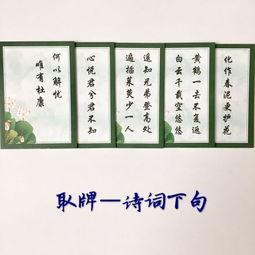 何以解忧
唯有杜康
心悦君兮君不知
遥知兄弟登高处
遍插茱萸少一人
黄鹤一去不复返
白云千载空悠悠
化作春泥更护花
取牌—诗词下句